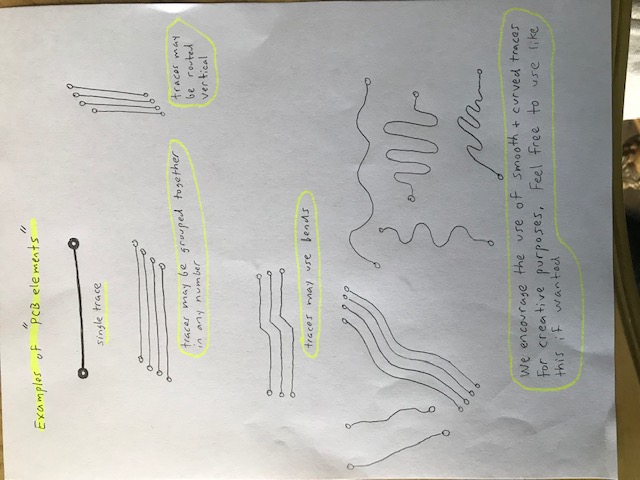 Examples of "PCB elements"
single trace
traces may be grouped together
in any number
traces may
be routed
vertical
traces may use bends
We encourage the use of smooth + curved traces
for creative purposes, Feel free to use like
this if wanted